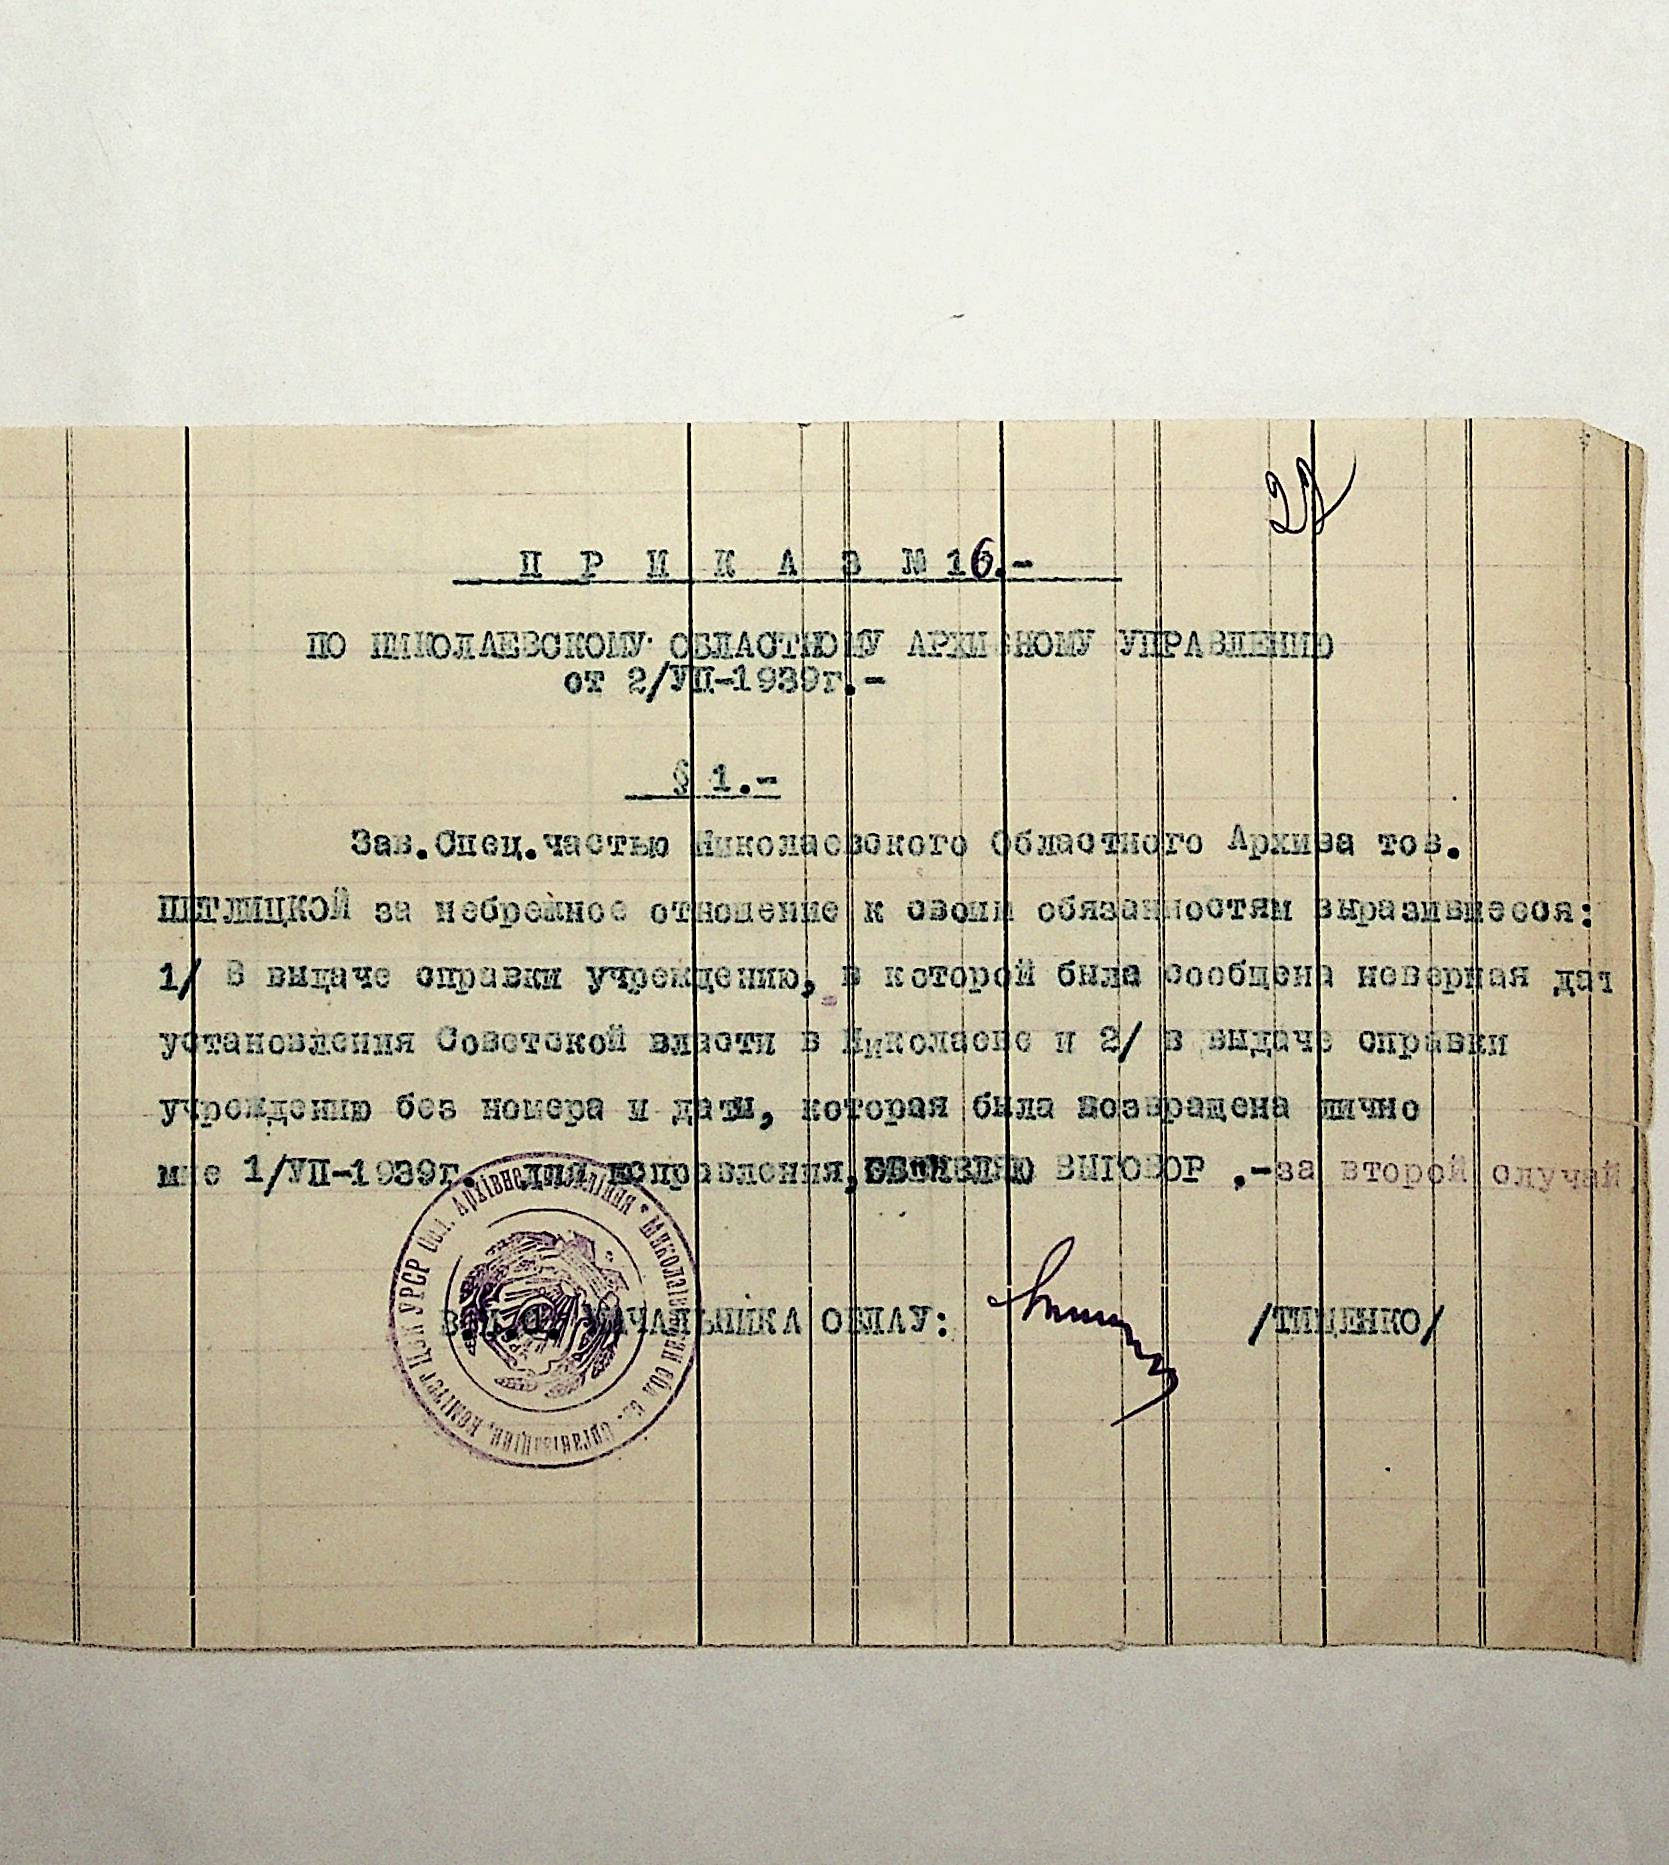 22
П Р И К А З № 16.-
ПО НИКОЛАЕВСКОМУ ОБЛАСТНОМУ АРХИВНОМУ УПРАВЛЕНИЮ
от 2/УП-1939г.-
§ 1.-
Зав.Спец.частью Николаевского Областного Архива тов.
ПЕТЛИЦКОЙ за небрежное отношение к своим обязанностям выразившееся:
1/ В выдаче справки учреждению, в которой была сообщена неверная дат
установления Советской власти в Николаеве и 2/ в выдаче справки
учреждению без номера и даты, которая была возвращена лично
мне 1/УП-1939г. для исправления, ВЫГОВОР .-за второй случай
В.И.О. НАЧАЛЬНИКА ОБЛАУ: /ТИЩЕНКО/
ЦВК УРСР Обл. Архівне управління * Миколаївський обл. Організаційн. комітет